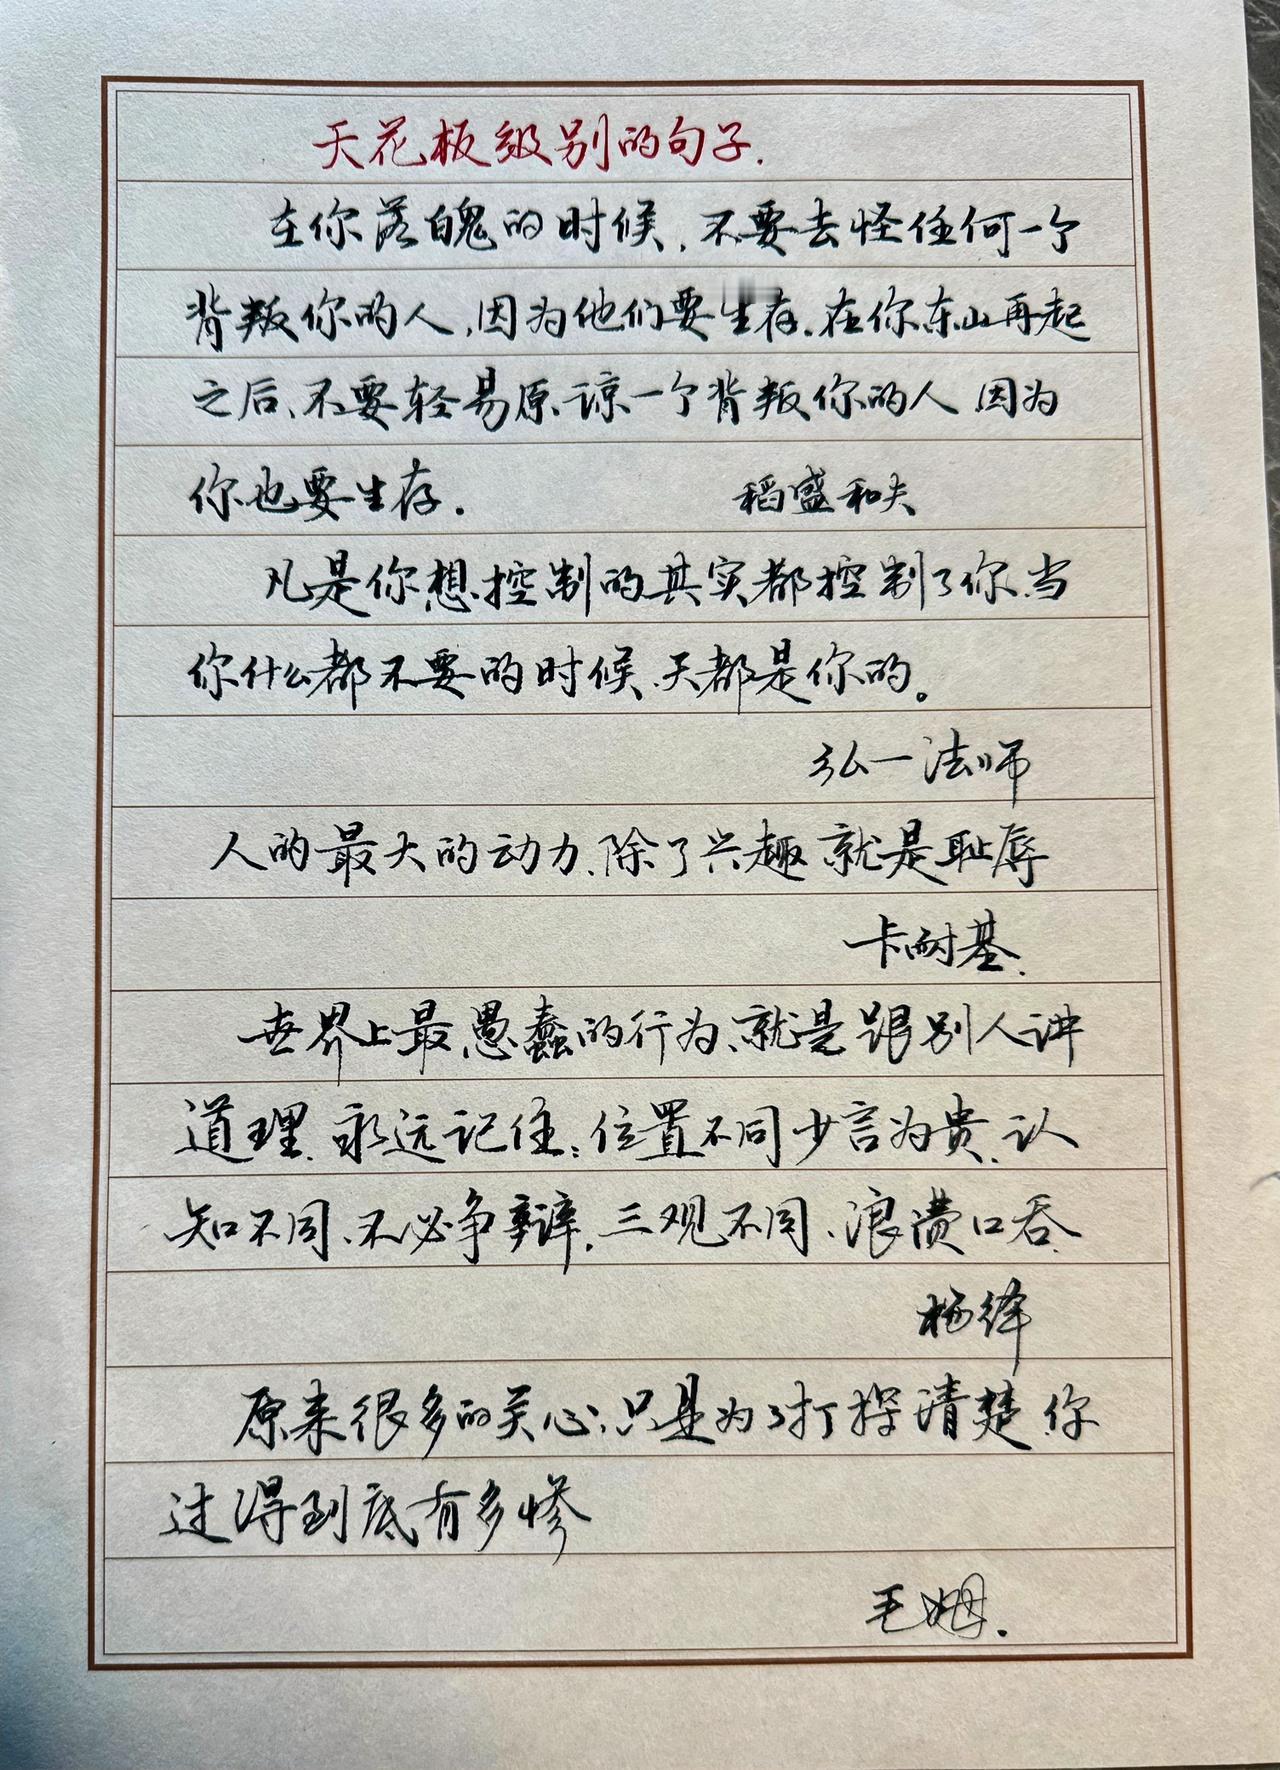 天花板级别的句子.
在你落魄的时候,不要去怪任何一个
背叛你的人,因为他们要生存.在你东山再起
之后、不要轻易原谅一个背叛你的人、因为
你也要生存. 稻盛和夫
凡是你想控制的其实都控制了你、当
你什么都不要的时候、天都是你的。
弘一法师
人的最大的动力、除了兴趣就是耻辱
卡耐基.
世界上最愚蠢的行为、就是跟别人讲
道理.永远记住:位置不同少言为贵、认
知不同、不必争辩.三观不同、浪费口吞.
杨绛
原来很多的关心、只是为了打探清楚你
过得到底有多惨
毛姆.